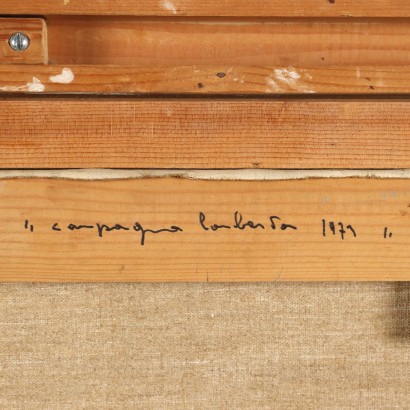 „ campagna lombarda 1979 „